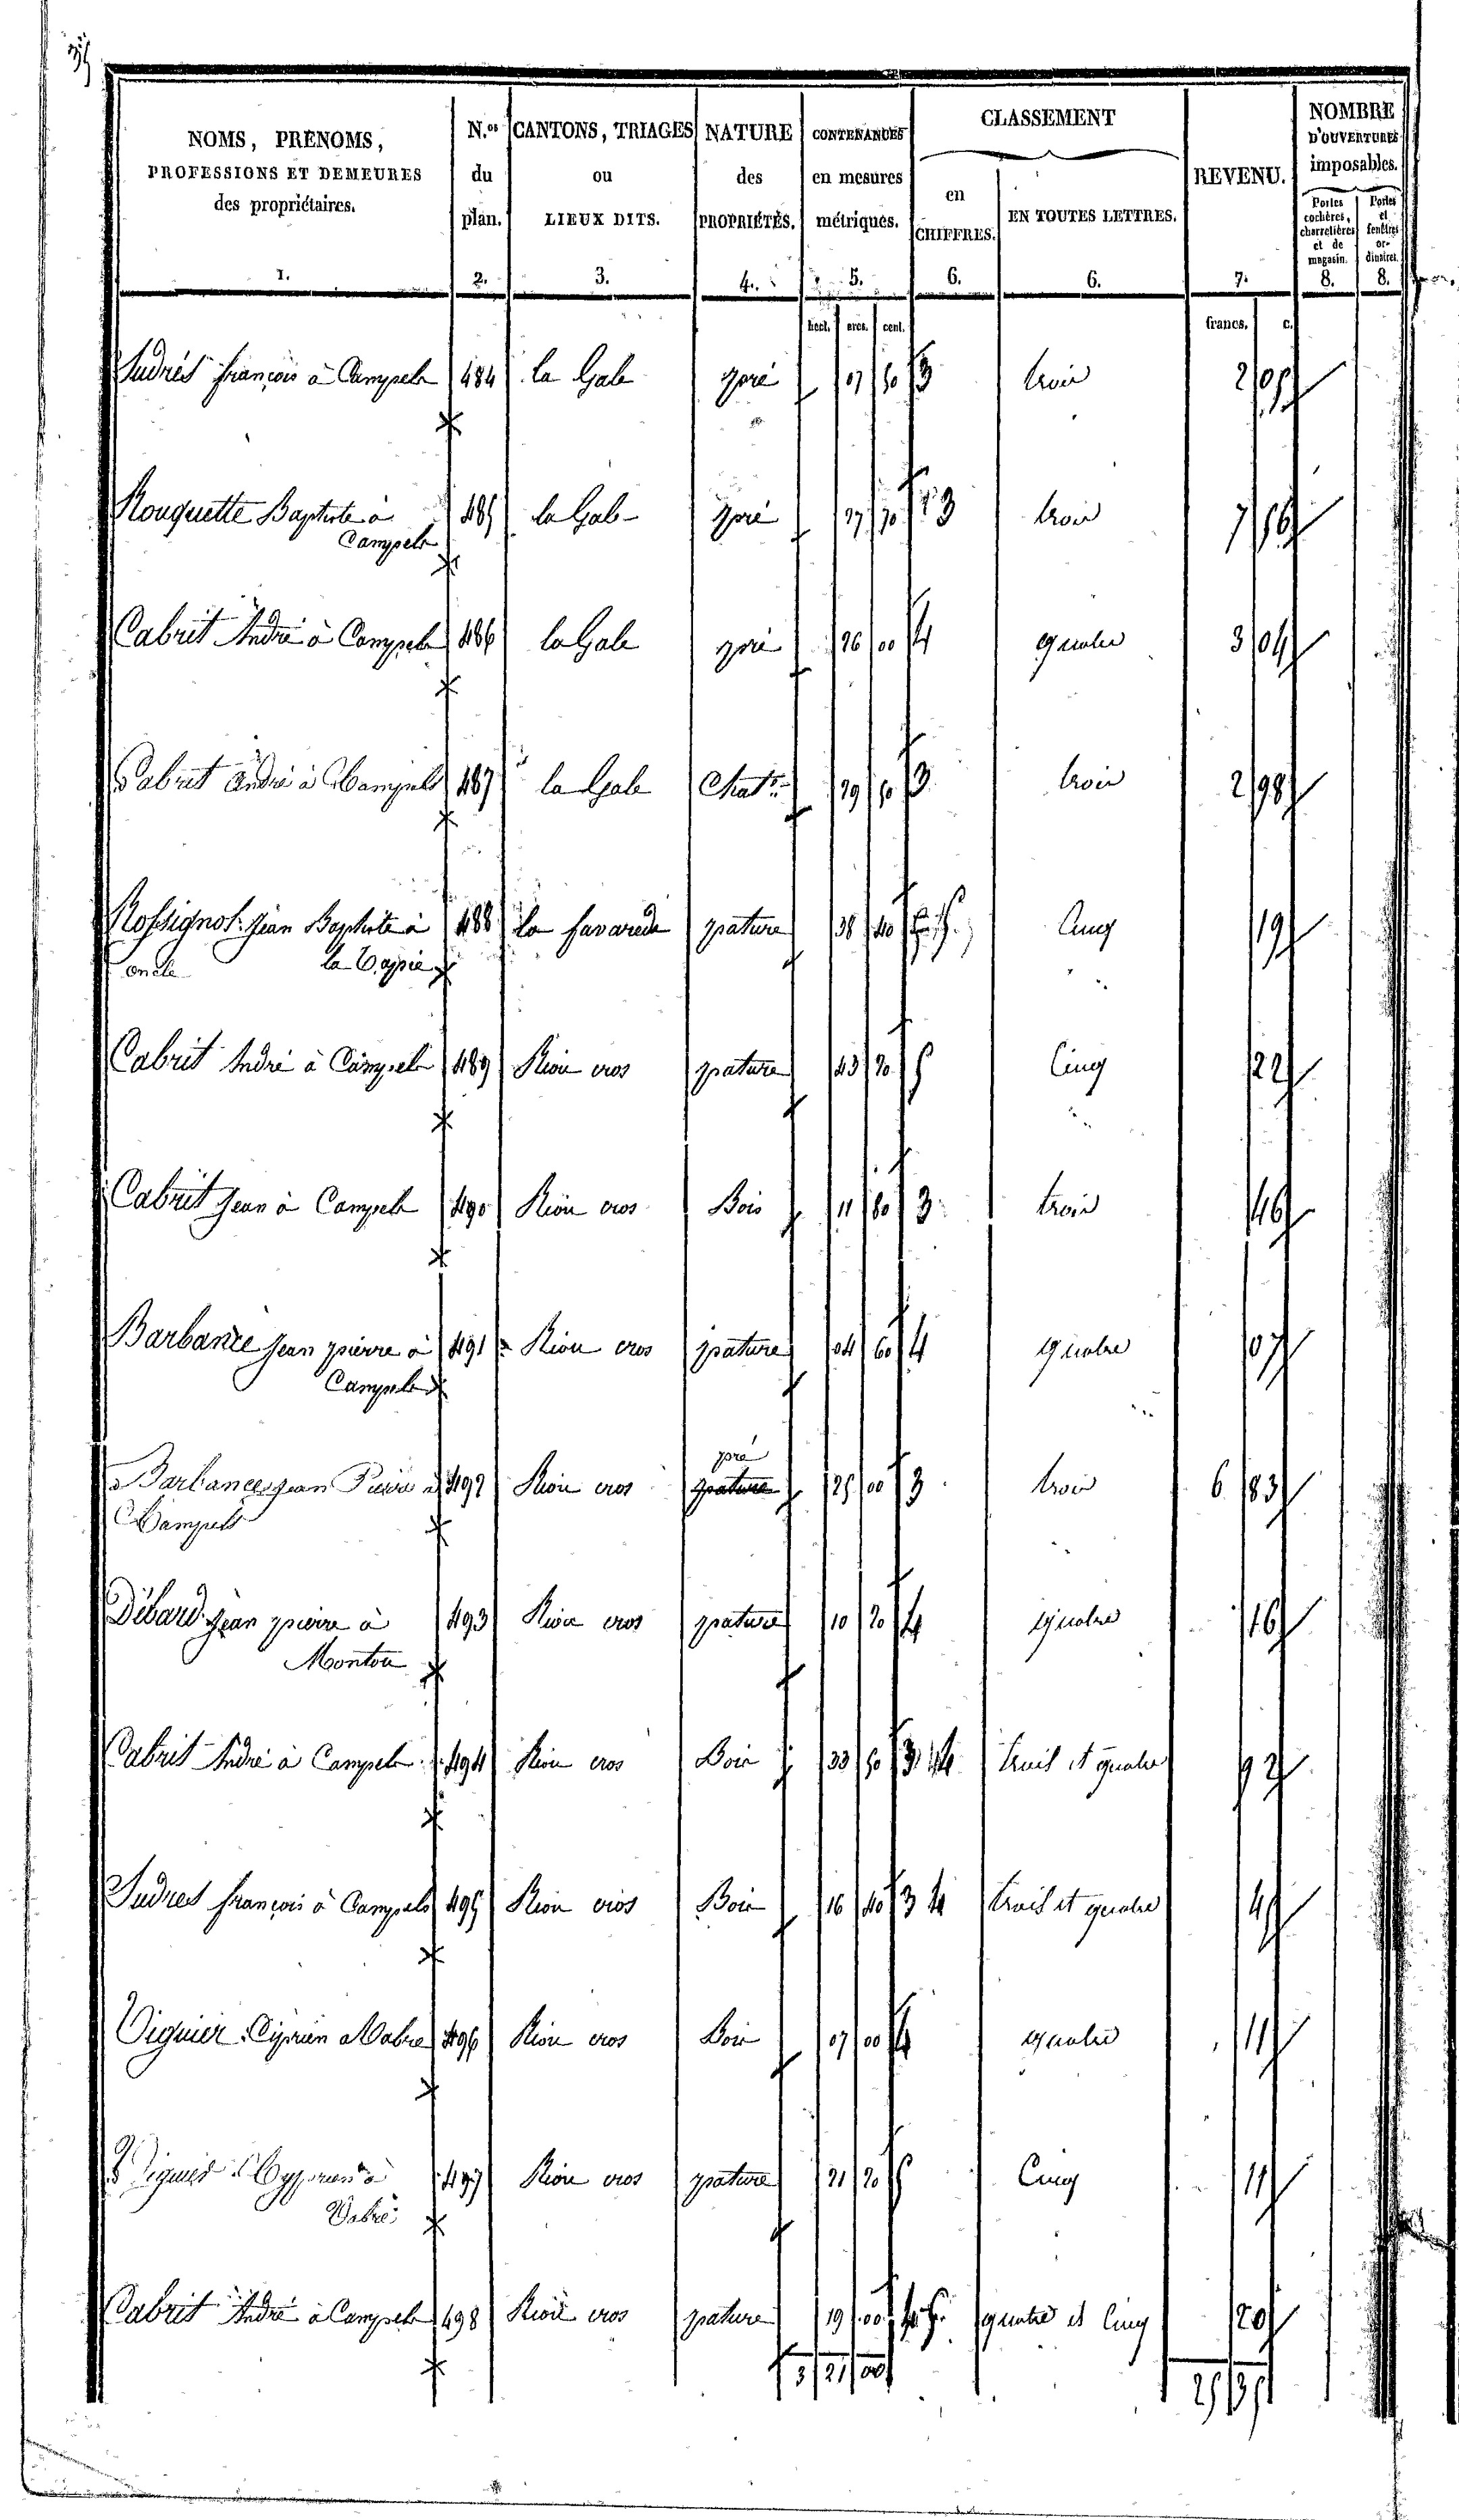 35
NOMS, PRÉNOMS,
PROFESSIONS ET DEMEURES
des propriétaires.
1.
N.os
du
plan.
2.
CANTONS, TRIAGES
ou
LIEUX DITS.
3.
NATURE
des
PROPRIÉTÉS.
4.
CONTENANCES
en mesures
métriques.
5.
CLASSEMENT
en
CHIFFRES.
6.
EN TOUTES LETTRES.
6.
REVENU.
7.
NOMBRE
D'OUVERTURES
imposables.
Portes cochères, charretières et de magasin.
8.
Portes et fenêtres ordinaires.
8.
hect. ares. cent. francs. c.
Sudres françois à Campels 484 la Gale pré 07 50 3 trois 2 05
Rouquette Baptiste à 485 la Gale pré 27 70 3 trois 7 56
Campels
Cabrit André à Campels 486 la Gale pré 26 00 4 quatre 3 04
Cabrit André à Campels 487 la Gale Chatr. 29 50 3 trois 2 98
Rossignol Jean Baptiste à 488 la favarede pature 38 40 5 Cinq 19
oncle la Capie
Cabrit André à Campels 489 Riou cros pature 43 20 5 Cinq 22
Cabrit Jean à Campels 490 Riou cros Bois 11 80 3 trois 46
Barbance Jean pierre à 491 Riou cros pature 04 60 4 quatre 07
Campels
pré
Barbance Jean Pierre à 492 Riou cros pature 25 00 3 trois 6 83
Campels
Débard Jean pierre à 493 Riou cros pature 10 20 4 quatre 16
Montou
Cabrit André à Campels 494 Riou cros Bois 33 50 3 4 trois et quatre 92
Sudres françois à Campels 495 Riou cros Bois 16 40 3 4 trois et quatre 45
Viguier Ciprien à Vabre 496 Riou cros Bois 07 00 4 quatre 11
Viguier Cyprien à 497 Riou cros pature 21 20 5 Cinq 11
Vabre
Cabrit André à Campels 498 Riou cros pature 19 00 4 5 quatre et Cinq 20
3 21 00 25 35